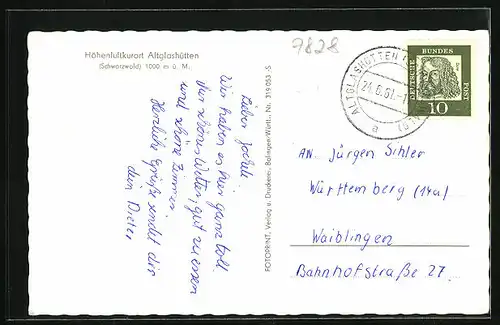 Höhenluftkurort Altglashütten
(Schwarzwald) 1000 m ü. M.
9828
ALTGLASHÜTTEN
24.6.61.-1
a
DEUTSCHE BUNDESPOST
10
Wir haben es hier ganz toll
sehr schönes Wetter, gut zu essen
und schöne Zimmer.
Herzliche Grüße sendet dir
dein Dieter
FOTOPRINT, Verlag u. Druckerei, Balingen-Württ., Nr. 319 053 S
AN. Jürgen Sihler
Württemberg (14a)
Waiblingen
Bahnhofstraße 27.